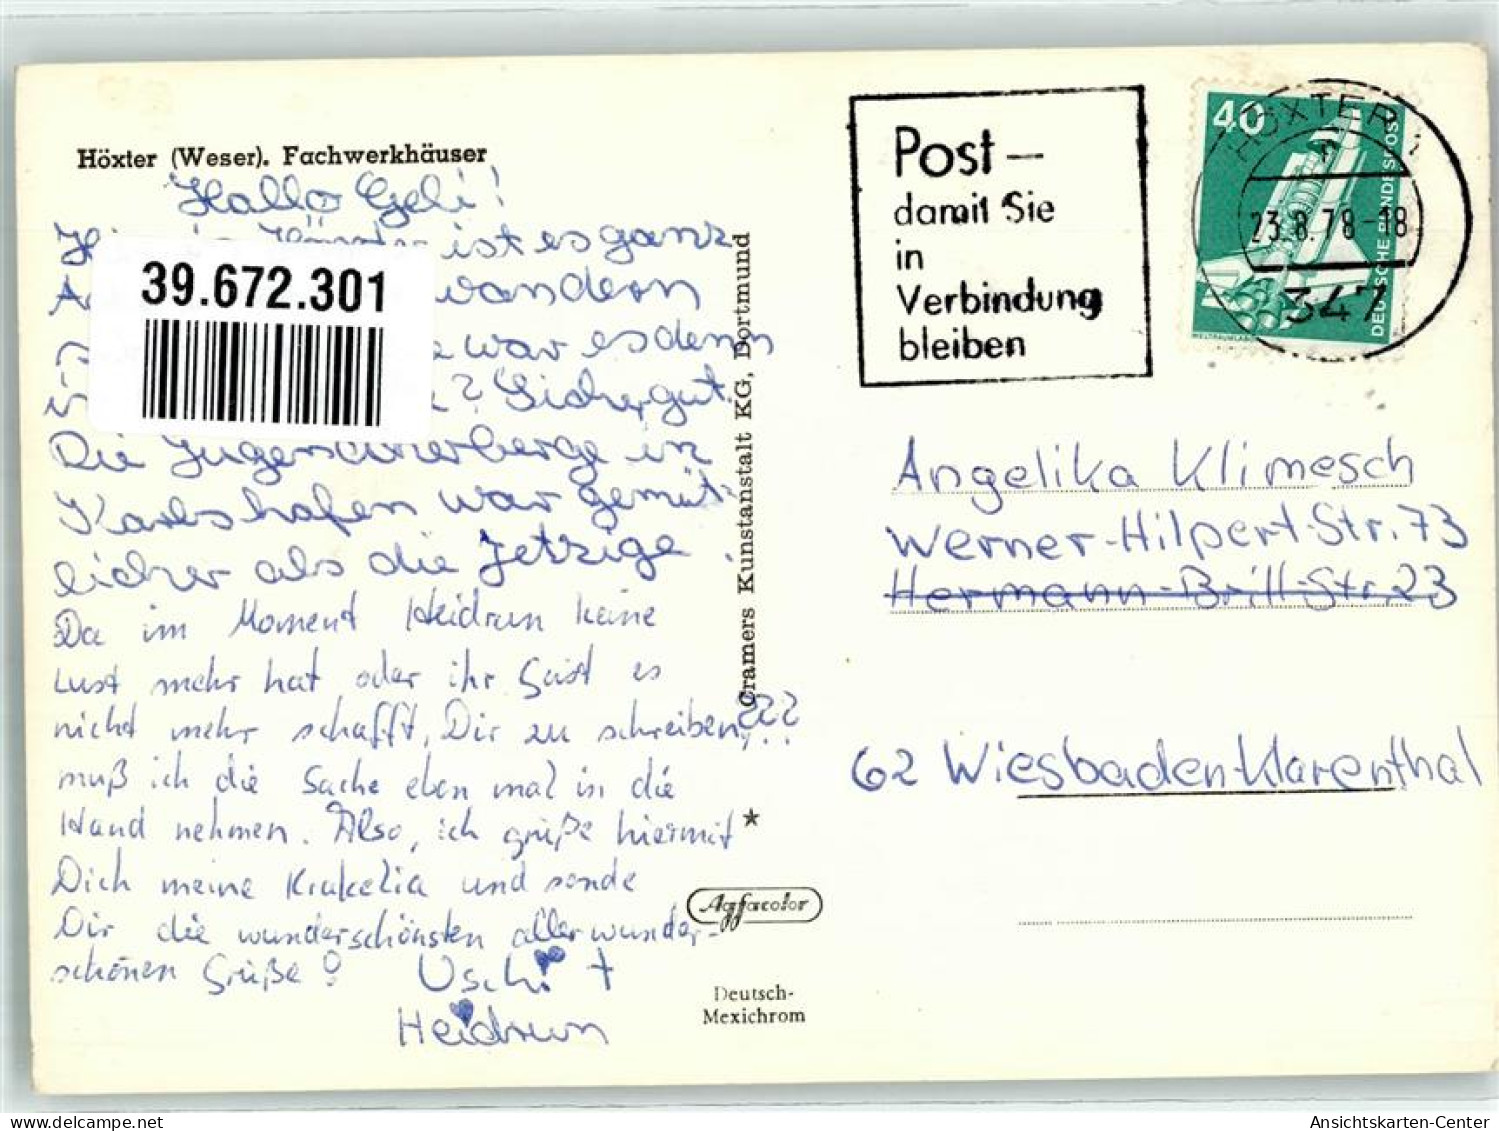 Höxter (Weser). Fachwerkhäuser
Hallo Geli!
in Höxter ist es ganz
wandern
war es denn
? Sicher gut.
Die Jugendherberge in
Karlshafen war gemüt-
licher als die Jetzige.
Da im Moment Heidrun keine
Lust mehr hat oder ihr Geist es
nicht mehr schafft, Dir zu schreiben,???
muß ich die Sache eben mal in die
Hand nehmen. Also, ich grüße hiermit
Dich meine Krakelia und sende
Dir die wunderschönsten allerwunder-
schönen Grüße!
Uschi +
Heidrun
39.672.301
Cramers Kunstanstalt KG, Dortmund
*
Agfacolor
Deutsch-
Mexichrom
Post –
damit Sie
in
Verbindung
bleiben
40
DEUTSCHE BUNDESPOST
WELTRAUMLABOR
HÖXTER 1
n
23.8.78-18
347
Angelika Klimesch
Werner-Hilpert-Str. 73
Hermann-Brill-Str. 23
62 Wiesbaden-Klarenthal
delcampe.net
Ansichtskarten-Center